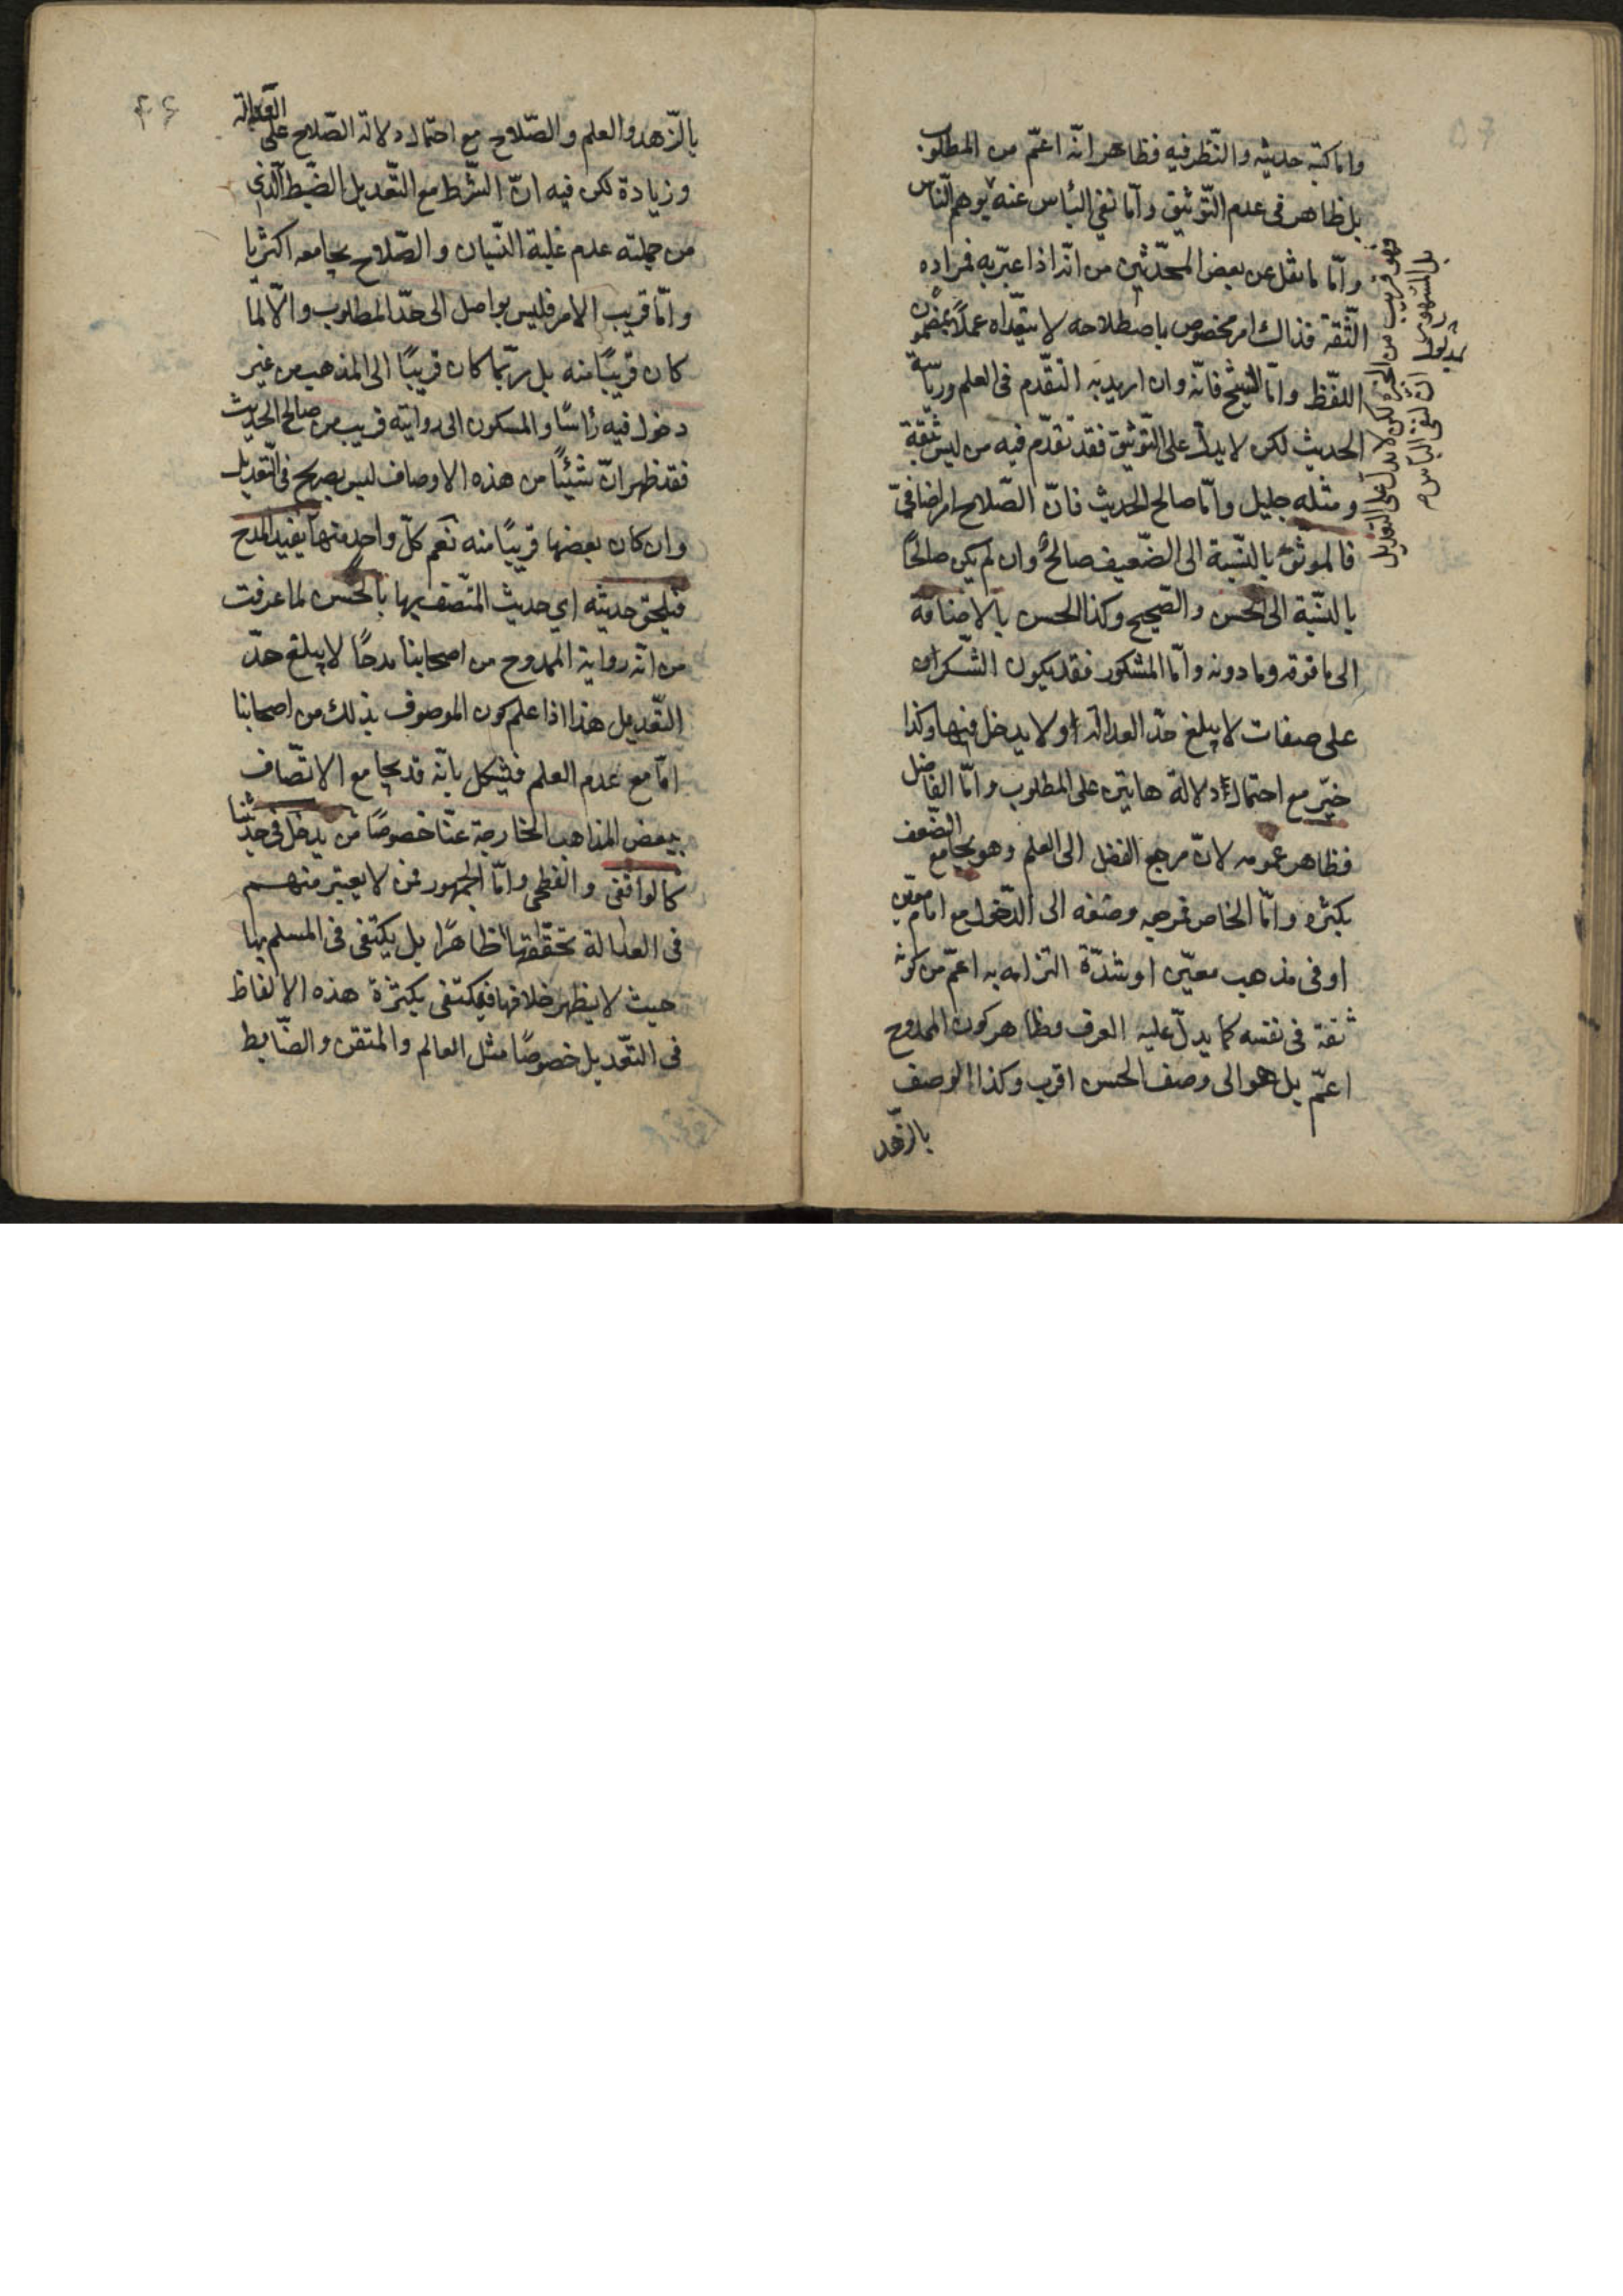 واما كتبة حديثه والنّظر فيه فظاهر انّه اعمّ من المطلوب
بل ظاهر فى عدم التّوثيق وامّا نفي البأس عنه يوهم النّاس
وامّا ما نقل عن بعض المحدّثين من انّه اذا عبّر به فمراده
الثّقة فذلك امر مخصوص باصطلاحه لا يتعدّاه عملاً بمضمون
اللفّظ وامّا الشيخ فانّه وان اريد به التقّدم فى العلم ورياسة
الحديث لكن لا يدلّ على التّوثيق فقد تقدّم فيه من ليس بثقة
ومثله جليل وامّا صالح الحديث فانّ الصّلاح امر اضافىّ
فالموثّق بالنّسبة الى الضّعيف صالحٌ وان لم يكن صالحًا
بالنسّبة الى الحسن والصّحيح وكذا الحسن بالاضافة
الى ما فوقه وما دونه وامّا المشكور فقد يكون الشّكر
على صفات لا يبلغ حدّ العدالة اولا يدخل فيها وكذا
خيّر مع احتمال دلالة هاتين على المطلوب وامّا الفاضل
فظاهر عمومه لانّ مرجع الفضل الى العلم وهو يجامع الضّعف
بكثره وامّا الخاص فمرجع وصفه الى الدّخول مع امام معيّن
او فى مذهب معيّن او شدّة التزامه به اعمّ من كونه
ثقة فى نفسه كما يدلّ عليه العرف وظاهر كون الممدوح
اعمّ بل هو الى وصف الحسن اقرب وكذا الوصف
بالزّهد
فهو قريب من الخيّر لكن لا يدلّ على التعديل
بل المشهور ان نفى البأس
بالزّهد والعلم والصّلاح مع احتمال دلالة الصّلاح على العدالة
وزيادة لكن فيه انّ الشّرط مع التّعديل الضّبط الّذى
من جملته عدم غلبة النّسيان والصّلاح يجامعه اكثريا
وامّا قريب الامر فليس بواصل الى حدّ المطلوب والاّ لما
كان قريبًا منه بل ربّما كان قريبًا الى المذهب من غير
دخول فيه رأسًا والمسكون الى روايته قريب من صالح الحديث
فقد ظهر انّ شيئًا من هذه الاوصاف ليس بصريح فى التّعديل
وان كان بعضها قريبًا منه نعم كلّ واحد منها يفيد المدح
فيلحق حديثه اى حديث المتّصف بها بالحسن لما عرفت
من انّه رواية الممدوح من اصحابنا مدحًا لا يبلغ حدّ
التّعديل هذا اذا علم كون الموصوف بذلك من اصحابنا
امّا مع عدم العلم فيشكل بانّه قد يجامع الاتّصاف
ببعض المذاهب الخارجة عنّا خصوصًا من يدخل فى حديثنا
كالواقفى والفطحى وامّا الجمهور فمن لا يعتبر منهم
فى العدالة تحقّقها ظاهرًا بل يكتفى فى المسلم بها
حيث لا يظهر خلافها فيكتفى بكثرة هذه الالفاظ
فى التّعديل خصوصًا مثل العالم والمتقن والضّابط